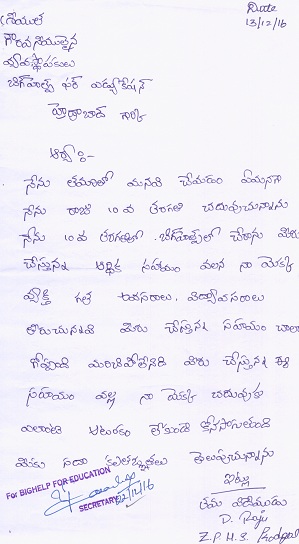 Date
13/12/16
గౌరవనీయులైన
వ్యవస్థాపకులు
బిగ్‌హెల్ప్ ఫర్ ఎడ్యుకేషన్
హైద్రాబాద్ గార్కి
ఆర్యా :-
నేను తమరితో మనవి చేయడం ఏమనగా
నేను 10 వ తరగతి చదువుచున్నాను
నేను 10 వ తరగతిలో బిగ్‌హెల్ప్‌లో చేరాను మీరు
చేస్తున్న ఆర్థిక సహాయం వలన నా యొక్క
వ్యక్తి గత అవసరాలు, విద్యావసరాలు
తీరుచున్నవి మీరు చేస్తున్న సహాయం చాలా
గొప్పది మరిచిపోలేనిది మీరు చేస్తున్న ఈ
సహాయం వల్ల నా యొక్క చదువుకు
ఎలాంటి ఆటంకం లేకుండా కొనసాగుతుంది
మీకు సదా కృతజ్ఞతలు తెలుపుచున్నాను
ఇట్లు
తమ విధేయుడు
D. Raju
Z.P.H.S.
For BIGHELP FOR EDUCATION
SECRETARY